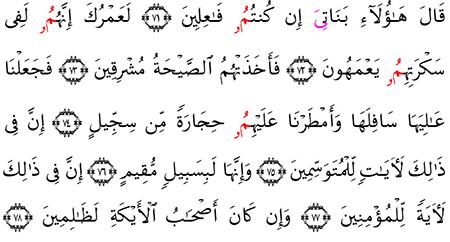 قَالَ هَٰٓؤُلَآءِ بَنَاتِيَ إِن كُنتُمُۥ فَٰعِلِينَ ۝٧١ لَعَمْرُكَ إِنَّهُمُۥ لَفِى
سَكْرَتِهِمُۥ يَعْمَهُونَ ۝٧٢ فَأَخَذَتْهُمُ ٱلصَّيْحَةُ مُشْرِقِينَ ۝٧٣ فَجَعَلْنَا
عَٰلِيَهَا سَافِلَهَا وَأَمْطَرْنَا عَلَيْهِمُۥ حِجَارَةً مِّن سِجِّيلٍ ۝٧٤ إِنَّ فِى
ذَٰلِكَ لَأٓيَٰتٍ لِّلْمُتَوَسِّمِينَ ۝٧٥ وَإِنَّهَا لَبِسَبِيلٍ مُّقِيمٍ ۝٧٦ إِنَّ فِى ذَٰلِكَ
لَأٓيَةً لِّلْمُؤْمِنِينَ ۝٧٧ وَإِن كَانَ أَصْحَٰبُ ٱلْأَيْكَةِ لَظَٰلِمِينَ ۝٧٨